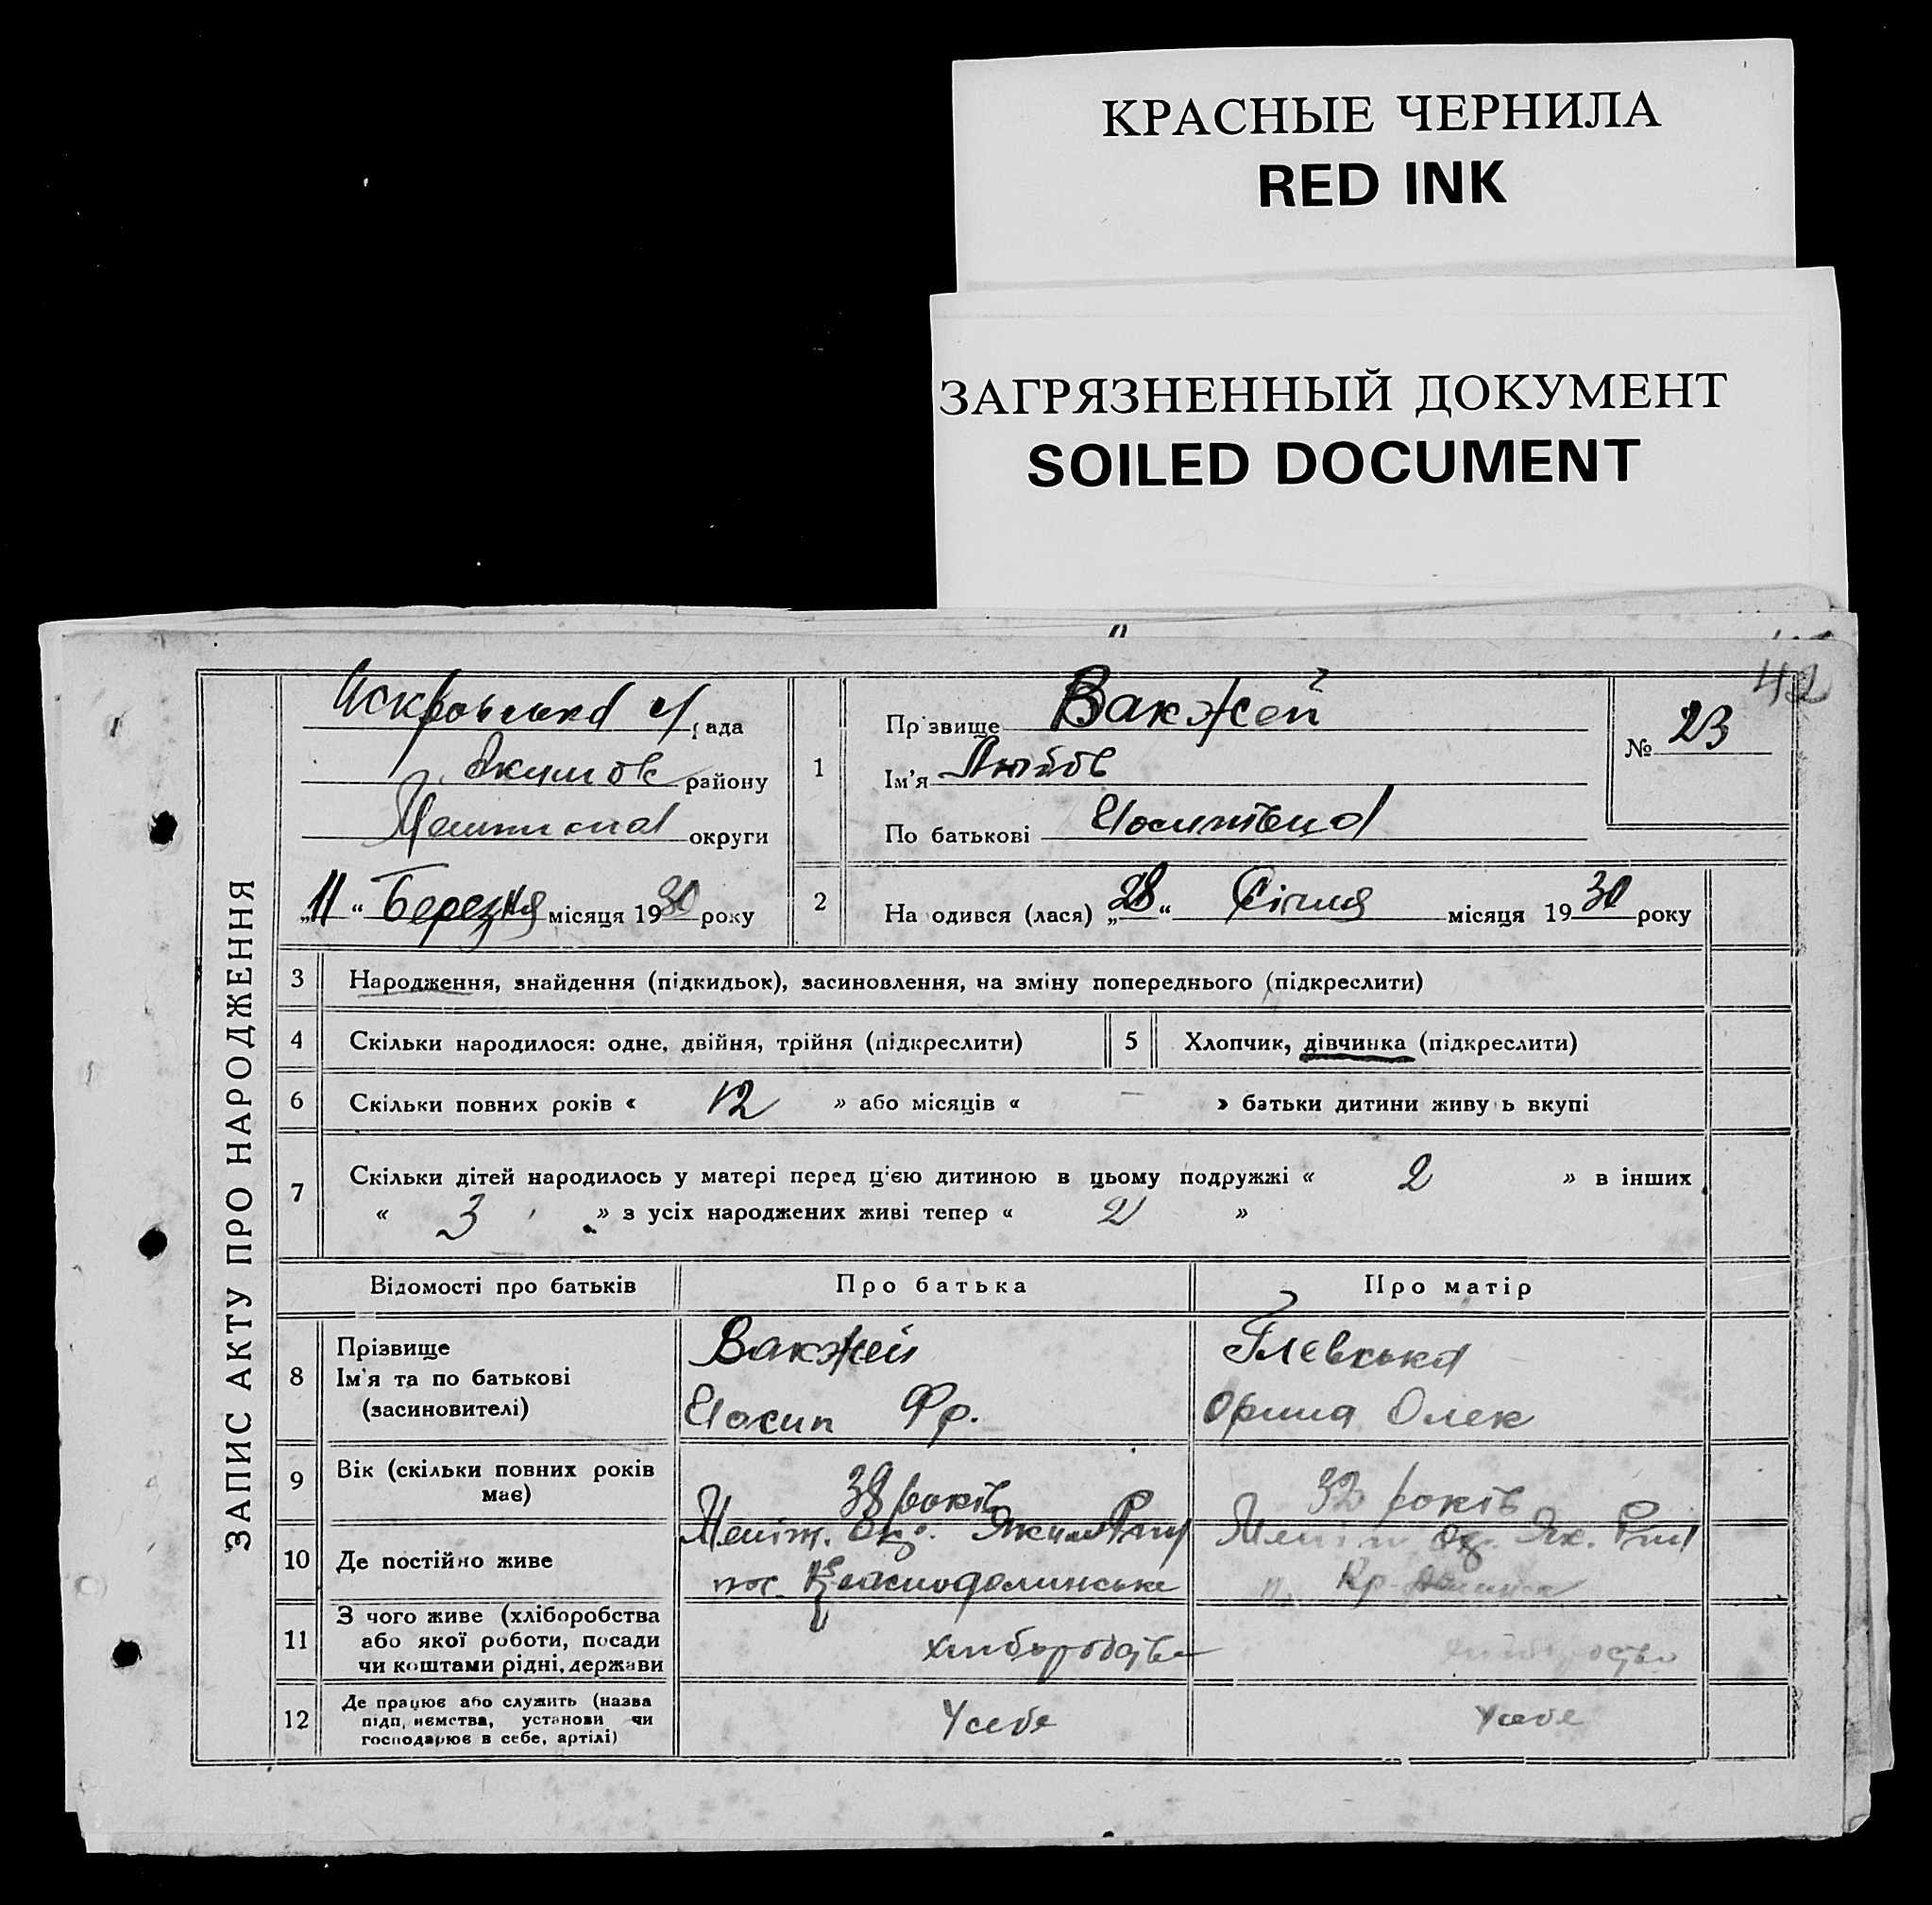 КРАСНЫЕ ЧЕРНИЛА
RED INK
ЗАГРЯЗНЕННЫЙ ДОКУМЕНТ
SOILED DOCUMENT
42
ЗАПИС АКТУ ПРО НАРОДЖЕННЯ
рада
Якимов району
округи
„11“ Березня місяця 1930 року
1
Прізвище Вакжей
Ім'я Любов
По батькові Йосипівна
№ 23
2
На одився (лася) „28“ Січня місяця 1930 року
3 Народження, знайдення (підкидьок), засиновлення, на зміну попереднього (підкреслити)
4 Скільки народилося: одне, двійня, трійня (підкреслити) 5 Хлопчик, дівчинка (підкреслити)
6 Скільки повних років « 12 » або місяців « — » батьки дитини живу ь вкупі
7 Скільки дітей народилось у матері перед ц'єю дитиною в цьому подружжі « 2 » в інших
« 3 » з усіх народжених живі тепер « 2 »
Відомості про батьків Про батька Про матір
8 Прізвище
Ім'я та по батькові
(засиновителі)
Вакжей
Йосип Фр.
Орина Олек
9 Вік (скільки повних років має)
38 років
32 років
10 Де постійно живе
Меліт. Окр. Яким Р-ну
пос.
Ок. Як. Р-ну
Кр.
11 З чого живе (хліборобства
або якої роботи, посади
чи коштами рідні, держави
хліборобство
12 Де працює або служить (назва
підп, иємства, установи чи
господарює в себе, артілі)
У себе
У себе